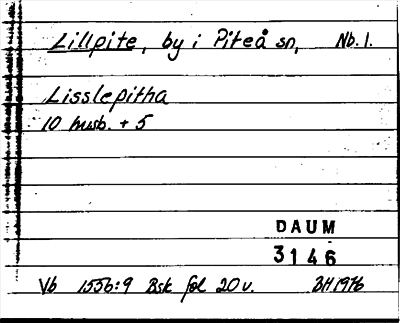 Lillpite, by i Piteå sn, Nb.l.
Lisslepitha
10 husb. + 5
DAUM
3146
Vb 1556:9 Bsk fol 20v. BH 1976